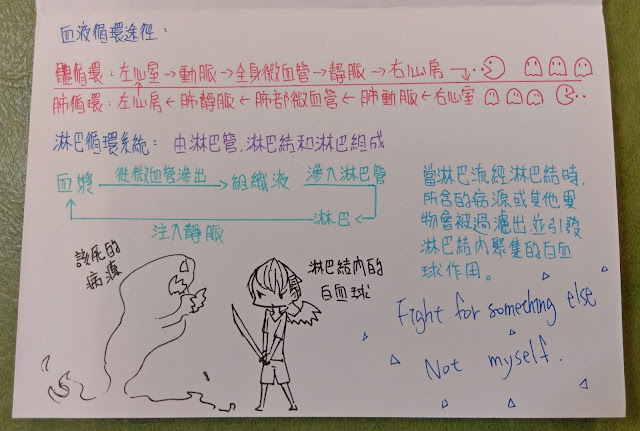 血液循環途徑：
體循環：左心室→動脈→全身微血管→靜脈→右心房
肺循環：左心房←肺靜脈←肺部微血管←肺動脈←右心室
淋巴循環系統：由淋巴管、淋巴結和淋巴組成
血漿 從微血管滲出 組織液 滲入淋巴管
淋巴
注入靜脈
當淋巴流經淋巴結時，
所含的病源或其他異
物會被過濾出並引發
淋巴結內聚集的白血
球作用。
該死的
病源
淋巴結內的
白血球
Fight for something else
Not myself.